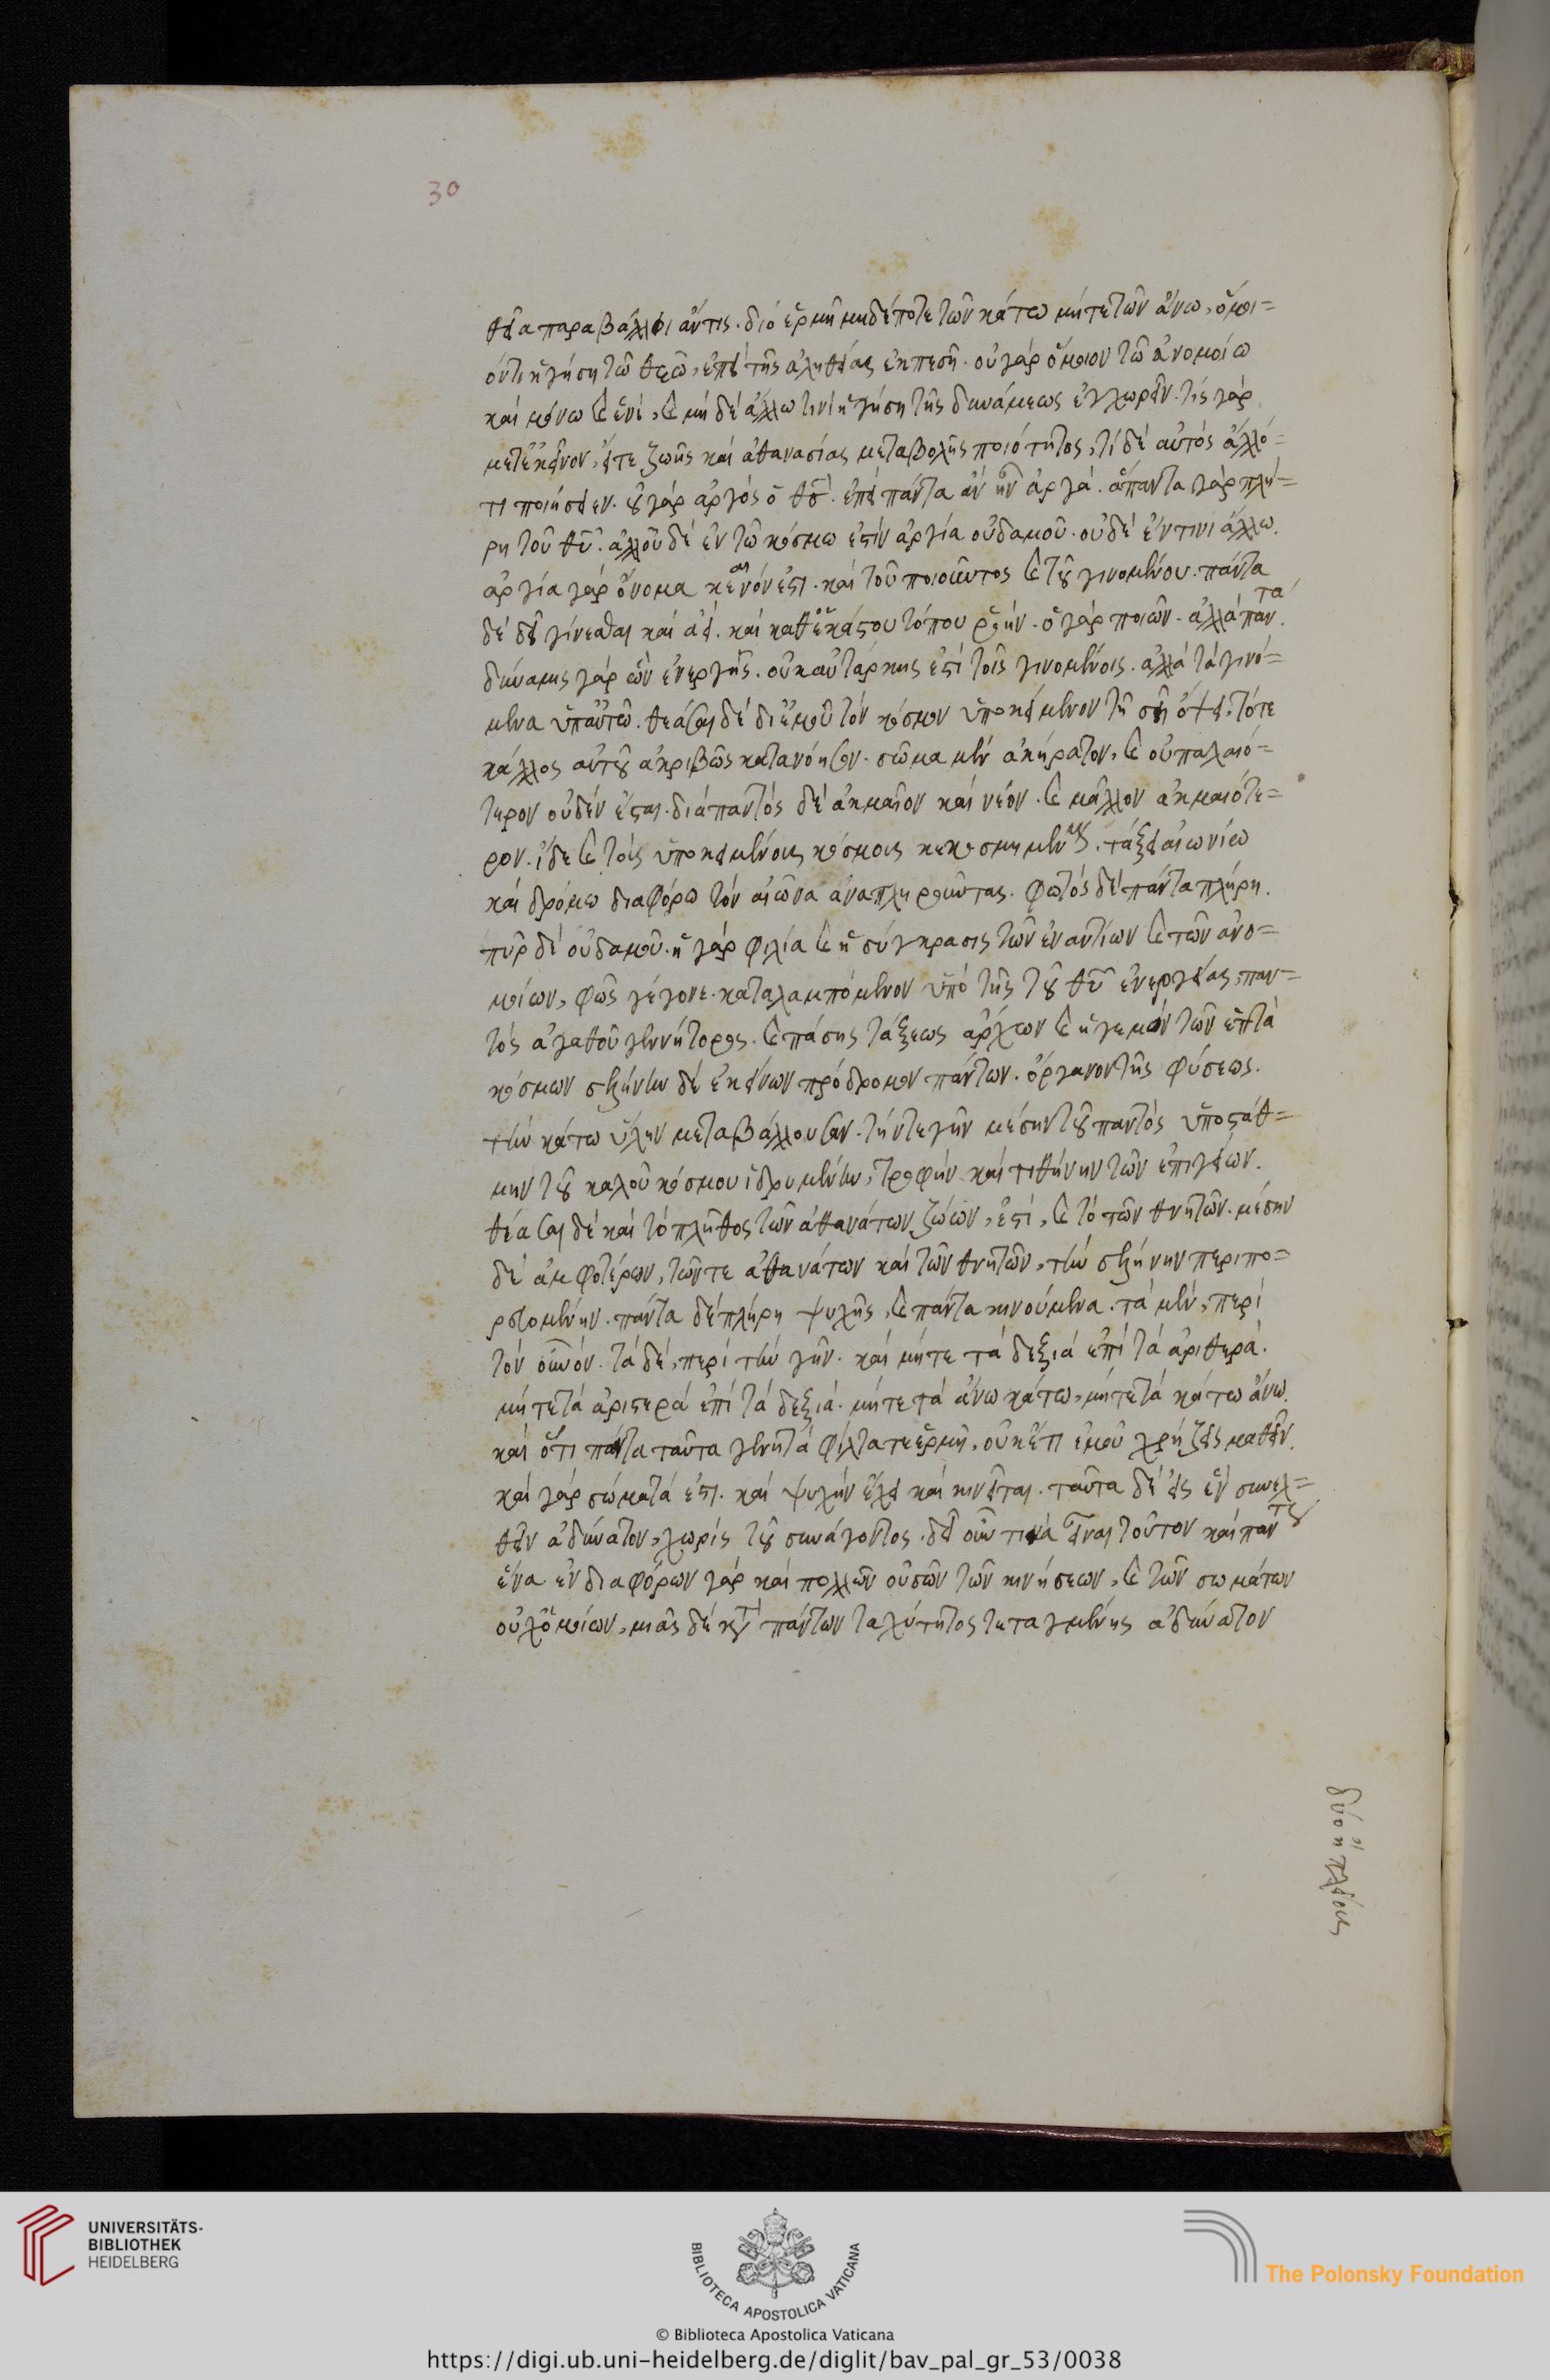 30
θεῖα παραβάλλοι ἄντις. διό ἑρμῆ μηδέποτε τῶν κάτω μήτε τῶν ἄνω, ὅμοι=
όντι ἡγήση τῶ θεῶ, ἐπεὶ τῆς ἀληθείας ἐκπεσῆ. οὐ γάρ ὅμοιον τῶ ἀνομοίω
καί μόνω καὶ ἑνί, καὶ μή δέ ἄλλω τινί ἡγήση τῆς δυνάμεως ἐγχωρεῖν. τίς γάρ
μετ' ἐκεῖνον, εἴτε ζωῆς καί ἀθανασίας μεταβολῆς ποιότητος, τί δέ αὐτός ἄλλό=
τι ποιήσειεν. οὐ γάρ ἀργός ὁ θς. ἐπεί πάντα ἀν ἦν ἀργά. ἅπαντα γάρ πλή=
ρη τοῦ θυ. ἀλλ' οὐδέ ἐν τῶ κόσμω ἐστίν ἀργία οὐδαμοῦ. οὐδέ ἔν τινι ἄλλω.
ἀργία γάρ ὄνομα κενόν ἐστι. καί τοῦ ποιοῦντος καὶ τοῦ γινομένου. πάντα
δέ δεῖ γίνεσθαι καί ἀεί. καί καθ' ἑκάστου τόπου ῥοήν. ὁ γάρ ποιῶν. ἀλλά πάντα
δύναμις γάρ ὢν ἐνεργής. οὐκ αὐτάρκης ἐπί τοῖς γινομένοις. ἀλλά τά γινό=
μενα ὑπ' αὐτῶ. θεάσαι δέ δι' ἐμοῦ τόν κόσμον ὑποκείμενον τῆ σῆ ὄψει. τό τε
κάλλος αὐτοῦ ἀκριβῶς κατανόησον. σῶμα μέν ἀκήρατον, καὶ οὐ παλαιό=
τερον οὐδέν ἔσται. διά παντός δέ ἀκμαῖον καί νέον. καὶ μᾶλλον ἀκμαιότε=
ρον. ἴδε καὶ τοίς ὑποκειμένοις κόσμοις κεκοσμημένους. τάξει αἰωνίω
καί δρόμω διαφόρω τόν αἰῶνα ἀναπληροῦντας. φωτός δέ πάντα πλήρη.
πῦρ δέ οὐδαμοῦ. ἡ γάρ φιλία καὶ ἡ σύγκρασις τῶν ἐναντίων καὶ τῶν ἀνο=
μοίων, φῶς γέγονε. καταλαμπόμενον ὑπό τῆς τοῦ θυ ἐνεργείας, παν=
τός ἀγαθοῦ γεννήτορος. καὶ πάσης τάξεως ἄρχων καὶ ἡγεμών τῶν ἑπτά
κόσμων σελήνην δέ ἐκείνων πρόδρομον πάντων. ὄργανον τῆς φύσεως.
τήν κάτω ὕλην μεταβάλλουσαν. τήν τε γῆν μέσην τοῦ παντός ὑποστάθ=
μην τοῦ καλοῦ κόσμου ἱδρυμένην, τροφήν καί τιθήνην τῶν ἐπιγείων.
θέασαι δέ καί τό πλῆθος τῶν ἀθανάτων ζώων, ἐστί, καὶ τό τῶν θνητῶν. μέσην
δέ ἀμφοτέρων, τῶν τε ἀθανάτων καί τῶν θνητῶν, τήν σελήνην περιπο=
ρευομένην. πάντα δέ πλήρη ψυχῆς, καὶ πάντα κινούμενα. τά μέν, περί
τόν οὐνόν. τά δέ, περί τήν γῆν. καί μήτε τά δεξιά ἐπί τά ἀριστερά.
μήτε τά ἀριστερά ἐπί τά δεξιά. μήτε τά ἄνω κάτω, μήτε τά κάτω ἄνω.
καί ὅτι πάντα ταῦτα γενητά φίλτατε ἑρμῆ, οὐκ ἔτι ἐμοῦ χρήζεις μαθεῖν.
καί γάρ σώματά ἐστι. καί ψυχήν ἔχει καί κινεῖται. ταῦτα δέ εἰς ἕν συνελ=
θεῖν ἀδύνατον, χωρίς τοῦ συνάγοντος. δεῖ οὖν τινά εἶναι τοῦτον καί πάντως
ἕνα ἐν διαφόρων γάρ καί πολλῶν οὐσῶν τῶν κινήσεων, καὶ τῶν σωμάτων
οὐχ ὁμοίων, μιᾶς δέ κατὰ πάντων ταχύτητος τεταγμένης ἀδύνατον
δύο ἢ πλείους
UNIVERSITÄTS-
BIBLIOTHEK
HEIDELBERG
BIBLIOTECA APOSTOLICA VATICANA
The Polonsky Foundation
© Biblioteca Apostolica Vaticana
https://digi.ub.uni-heidelberg.de/diglit/bav_pal_gr_53/0038